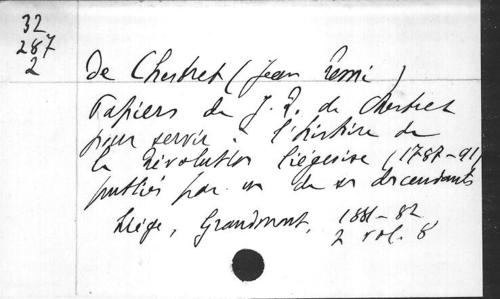 32
287
2
de Chestret (Jean Remi)
Papiers de J. R. de Chestret
pour servir à l'histoire de
la Révolution liégeoise (1787-91)
publiés par un de ses descendants
Liége, Grandmont, 1881-82
2 vol. 8°